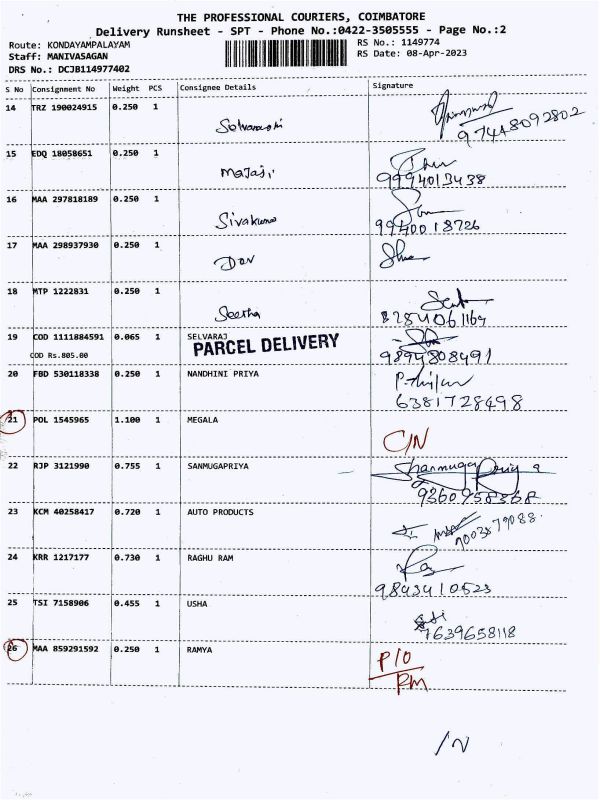 THE PROFESSIONAL COURIERS, COIMBATORE
Delivery Runsheet - SPT - Phone No.:0422-3505555 - Page No.:2
Route: KONDAYAMPALAYAM RS No.: 1149774
Staff: MANIVASAGAN RS Date: 08-Apr-2023
DRS No.: DCJB114977402
S No Consignment No Weight PCS Consignee Details Signature
14 TRZ 190024915 0.250 1
97448092802
15 EDQ 18058651 0.250 1
9994013438
16 MAA 297818189 0.250 1
Sivakumar 9940018726
17 MAA 298937930 0.250 1
18 MTP 1222831 0.250 1
Seetha
19 COD 1111884591 0.065 1 SELVARAJ
COD Rs.805.00 PARCEL DELIVERY 9894808491
20 FBD 530118338 0.250 1 NANDHINI PRIYA
6381728498
21 POL 1545965 1.100 1 MEGALA
C/N
22 RJP 3121990 0.755 1 SANMUGAPRIYA Shanmuga Priya
9360958368
23 KCM 40258417 0.720 1 AUTO PRODUCTS
24 KRR 1217177 0.730 1 RAGHU RAM
9843410523
25 TSI 7158906 0.455 1 USHA
7639658118
26 MAA 859291592 0.250 1 RAMYA P/O
RM
/N